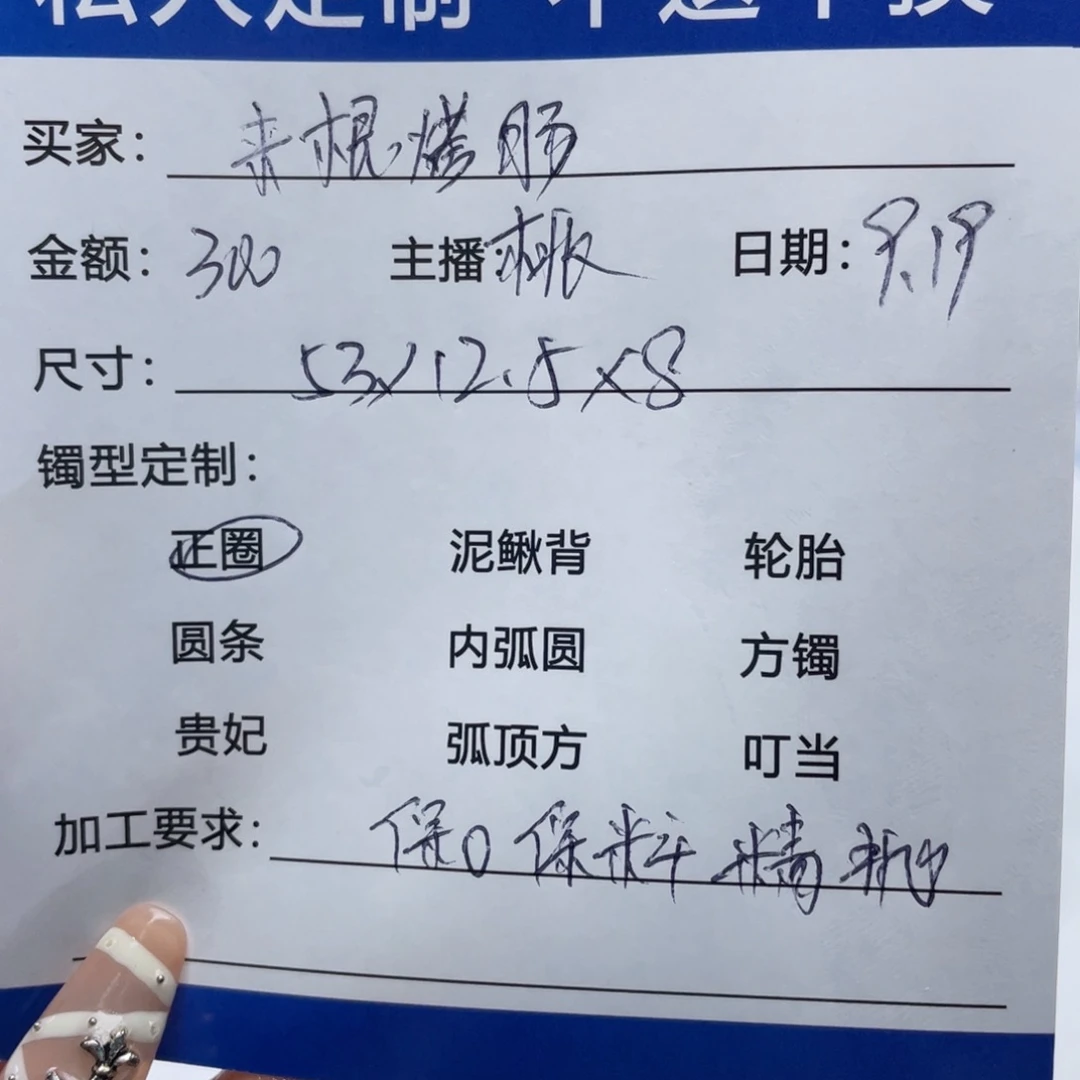 私人定制 不退不换
买家：来根烤肠
金额：300 主播：桃 日期：9.19
尺寸：53×12.5×8
镯型定制：
正圈 泥鳅背 轮胎
圆条 内弧圆 方镯
贵妃 弧顶方 叮当
加工要求：保口 保料 精抛